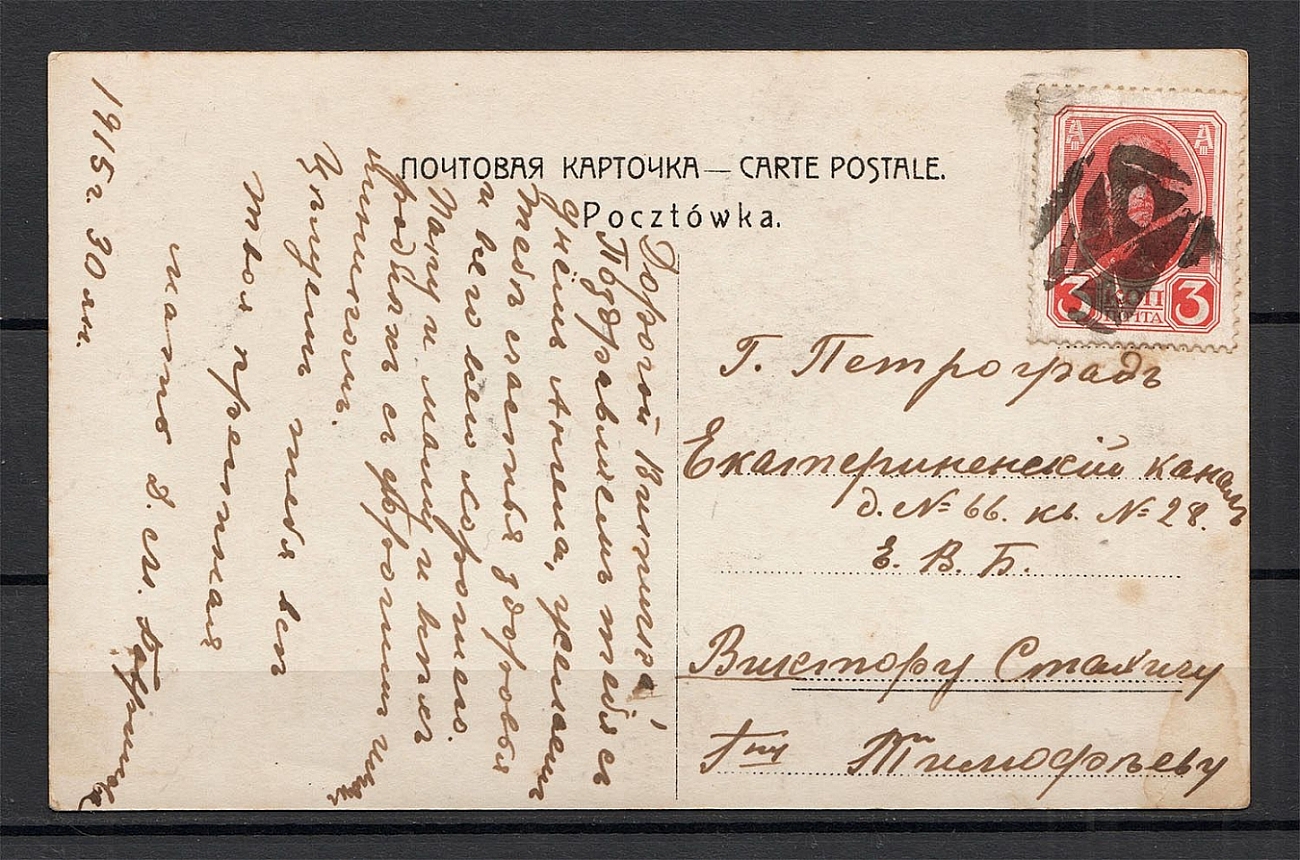 ПОЧТОВАЯ КАРТОЧКА — CARTE POSTALE.
Pocztówka.
А А
3 КОП 3
ПОЧТА
Г. Петроградъ
Екатериненскій каналъ
д. № 66. кв. № 28.
Е. В. Б.
Виктору Стахичу
Гну Тимофѣеву
Дорогой
Поздравляемъ тебя съ
днемъ Ангела, желаем
тебѣ счастья здоровья
и всего хорошаго.
Папу и маму и всѣх
родных с дорогим
имянинником.
Цѣлуем тебя все
твоя крестная
мать
1915 г. 30